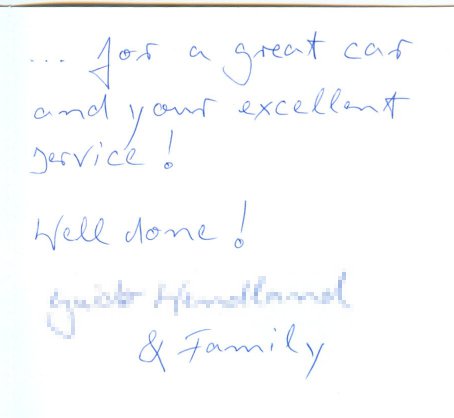 ... for a great car
and your excellent
service!
Well done!
& Family